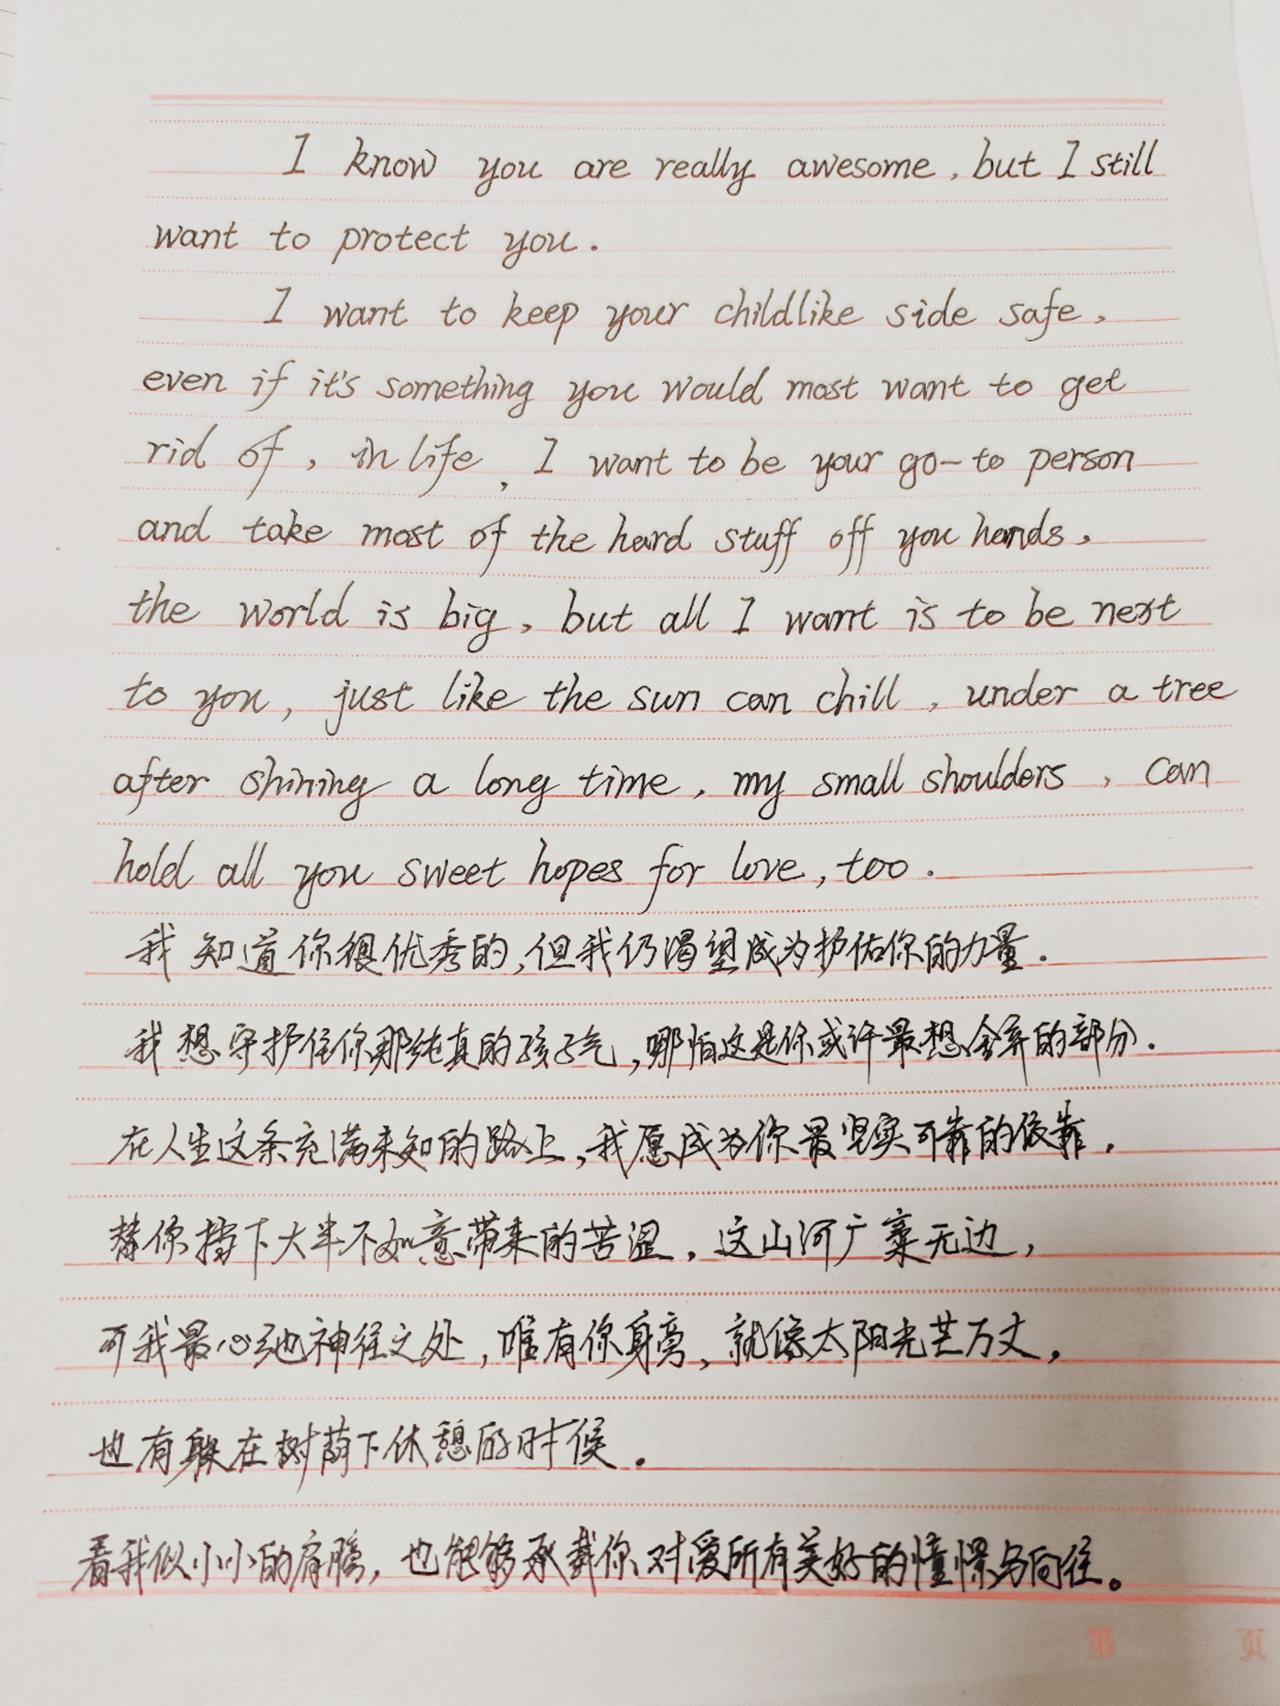 I know you are really awesome, but I still
want to protect you.
I want to keep your childlike side safe,
even if it's something you would most want to get
rid of, in life, I want to be your go-to person
and take most of the hard stuff off you hands,
the world is big, but all I want is to be next
to you, just like the sun can chill, under a tree
after shining a long time, my small shoulders, can
hold all you sweet hopes for love, too.
我知道你很优秀的,但我仍渴望成为护佑你的力量.
我想守护住你那纯真的孩子气,哪怕这是你或许最想舍弃的部分.
在人生这条充满未知的路上,我愿成为你最坚实可靠的依靠,
替你挡下大半不如意带来的苦涩,这山河广袤无边,
可我最心弛神往之处,唯有你身旁,就像太阳光芒万丈,
也有躲在树荫下休憩的时候.
看我似小小的肩膀,也能够承载你对爱所有美好的憧憬与向往。
第 页